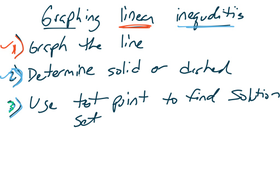 Graphing linear inequditis
1) Graph the line
2) Determine solid or dashed
3) Use test point to find solution
set